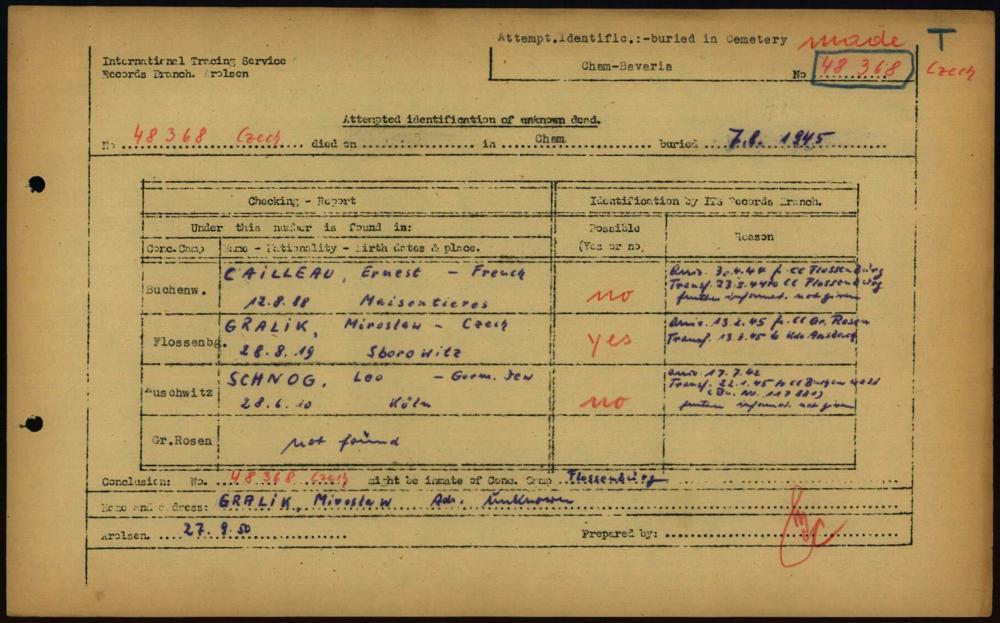 Attempt.Identific.:-buried in Cemetery made T
International Tracing Service
Records Branch. Arolsen
Cham-Bavaria
No 48 368 Czech
Attempted identification of unknown dead.
No 48368 Czech died on in Cham buried 7.6. 1945
Checking - Report Identification by ITS Records Branch.
Under this number is found in: Possible (Yes or no) Reason
Conc.Camp Name - Nationality - Birth dates & place.
Buchenw. CAILLEAU, Ernest - French
12.8.88 Maisentieres
no
Arriv. 30.4.44 fr. CC Flossenbürg
Transf. 23.5.44 to CC Flossenbürg
further informed. not given
Flossenbg. GRALIK, Miroslaw - Czech
28.8.19 Sborowitz
yes
Arriv. 13.2.45 fr. CC Gr. Rosen
Transf. 13.3.45 to Kdo Ansbach
Auschwitz SCHNOG, Leo - Germ. Jew
28.6.10 Köln
no
arriv. 17.7.42
Transf. 22.1.45 to CC
(Bu. Nr. 117881)
further informed. not given
Gr.Rosen not found
Conclusion: No. 48368 Czech might be inmate of Conc. Camp Flossenbürg
Name and address: GRALIK, Miroslaw Adr. unknown
Arolsen. 27.9.50 Prepared by: